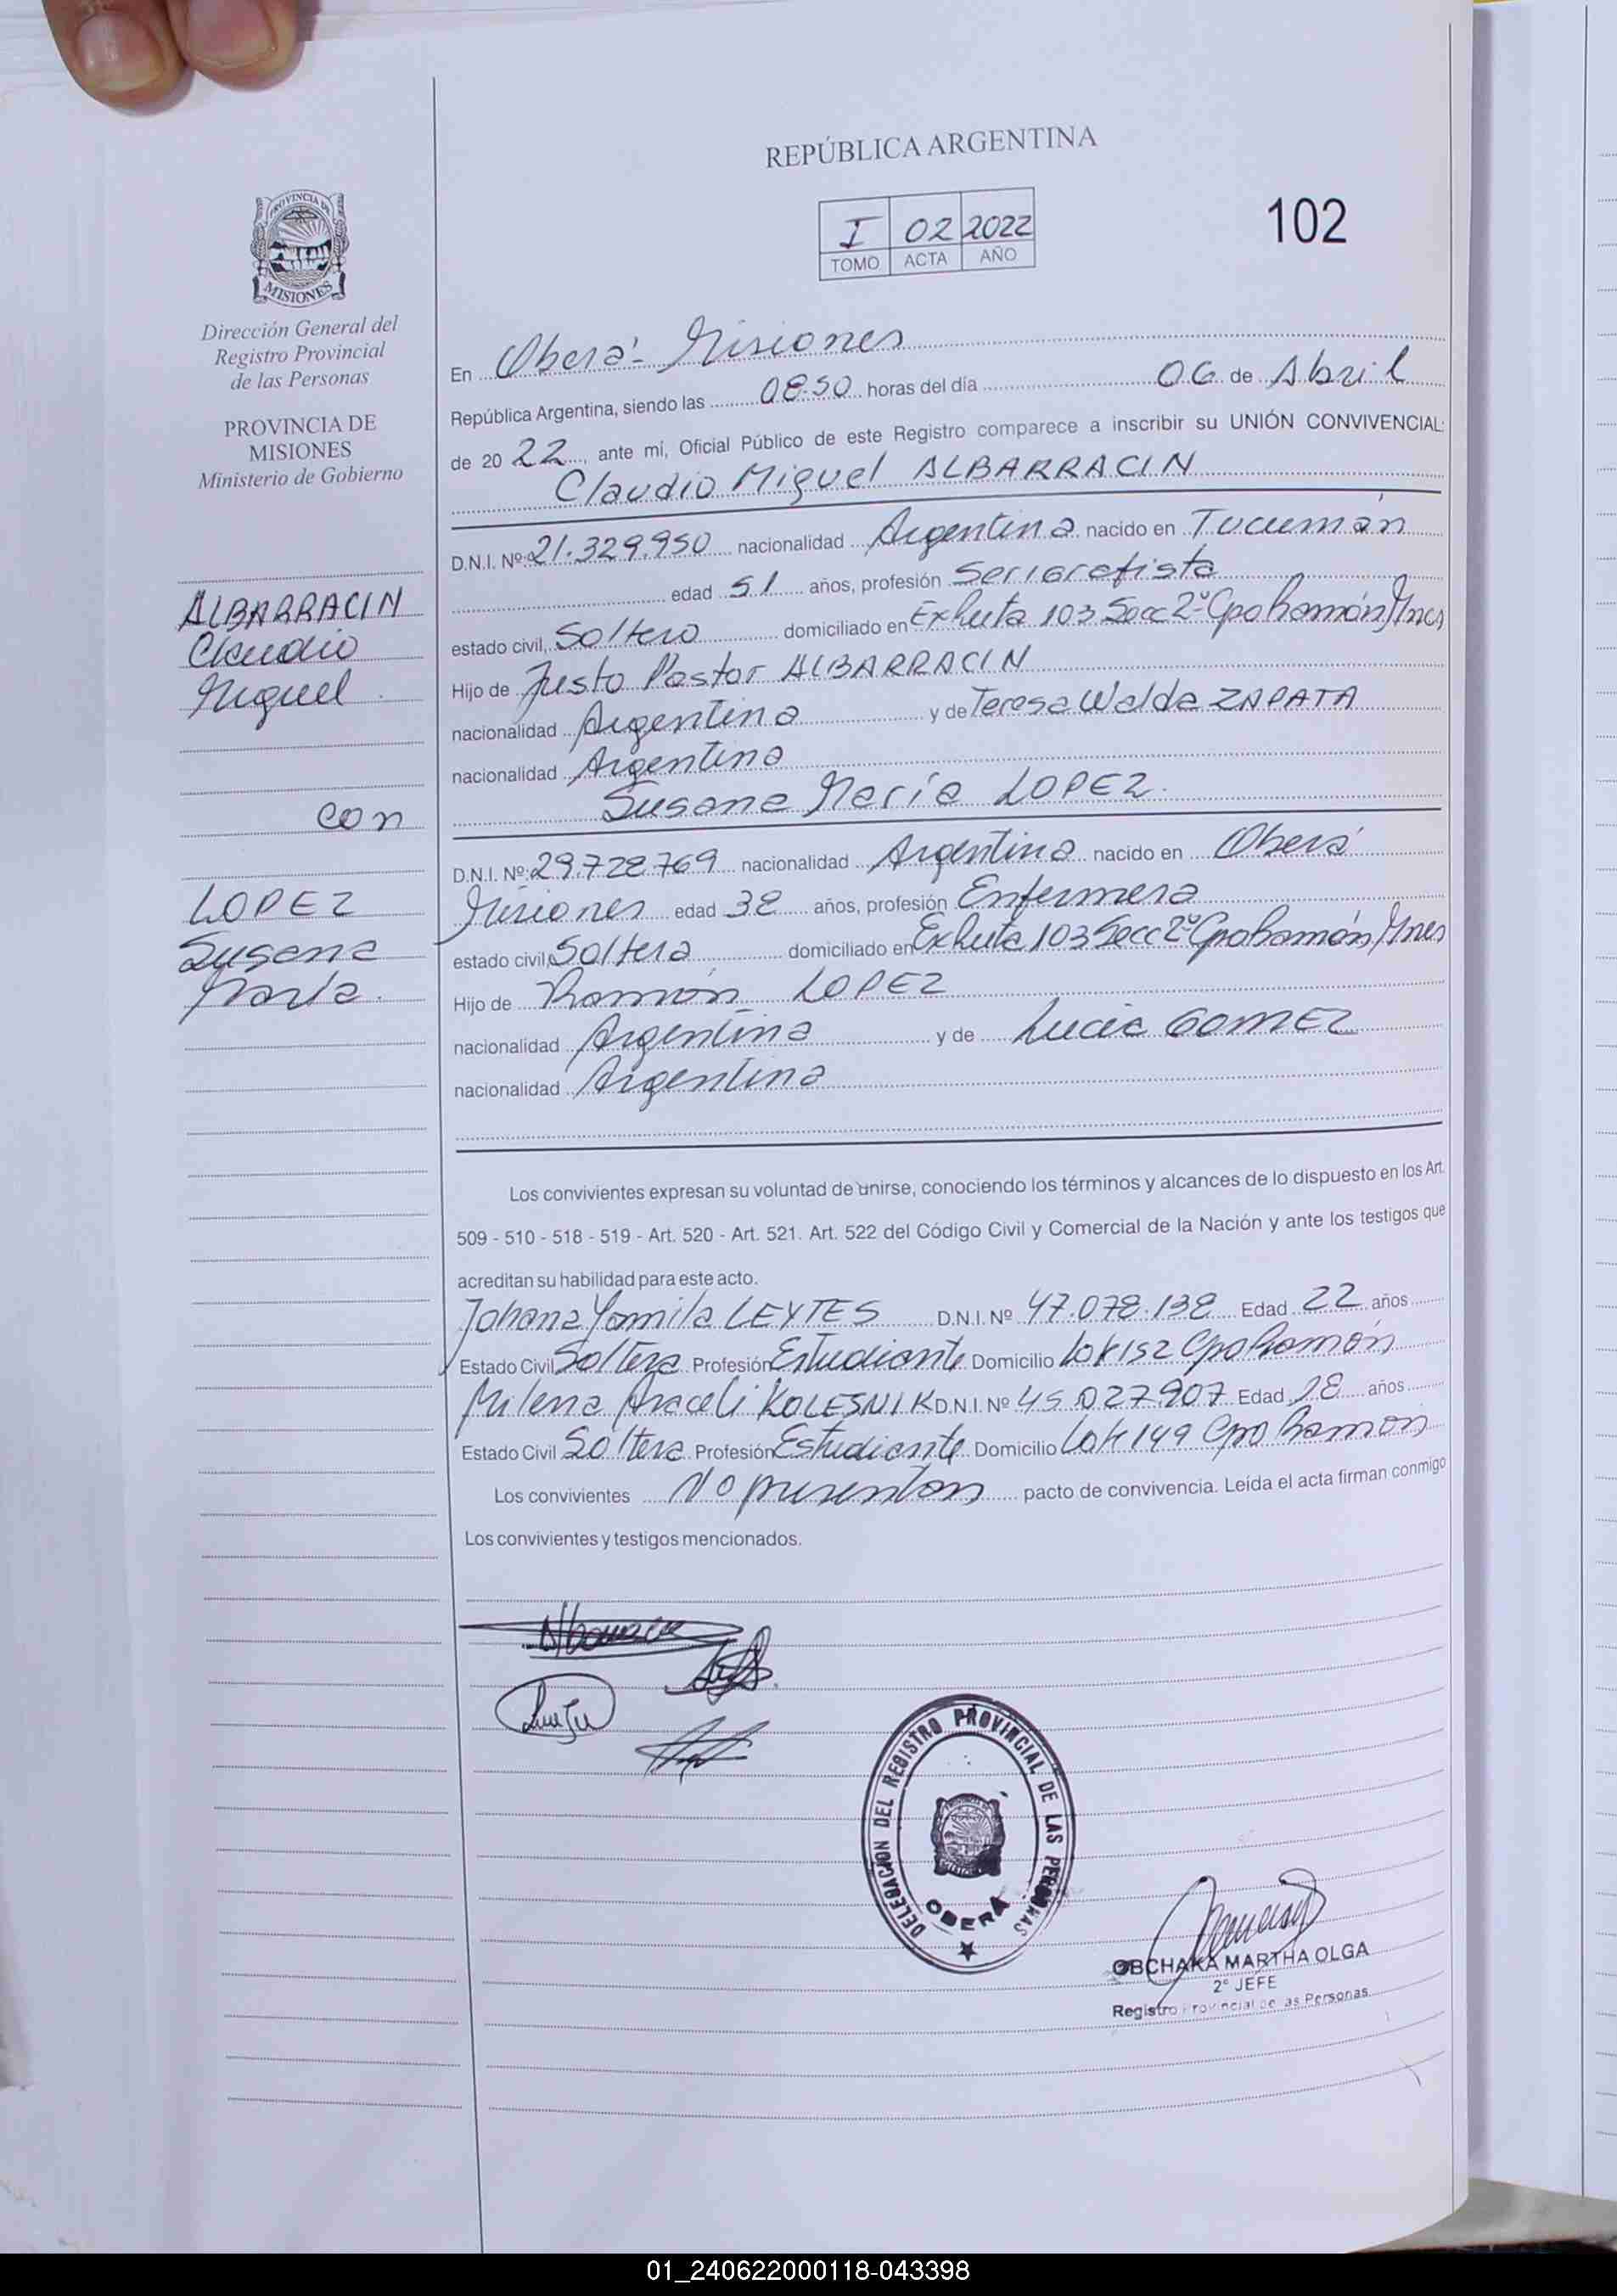 REPÚBLICA ARGENTINA
I 02 2022
TOMO ACTA AÑO
102
PROVINCIA DE
MISIONES
Dirección General del
Registro Provincial
de las Personas
PROVINCIA DE
MISIONES
Ministerio de Gobierno
ALBARRACIN
Claudio
Miguel
con
LOPEZ
Susana
María.
En Oberá - Misiones
República Argentina, siendo las 08:50 horas del día 06 de Abril
de 20 22, ante mí, Oficial Público de este Registro comparece a inscribir su UNIÓN CONVIVENCIAL:
Claudio Miguel ALBARRACIN
D.N.I. Nº 21.329.950 nacionalidad Argentina nacido en Tucumán
edad 51 años, profesión
estado civil, Soltero domiciliado en 103 Secc 2º Cpo Ramón Mnes
Hijo de Justo Pastor ALBARRACIN
nacionalidad Argentina y de Teresa Walda ZAPATA
nacionalidad Argentina
Susana María LOPEZ.
D.N.I. Nº 29.728.769 nacionalidad Argentina nacido en Oberá
Misiones edad 38 años, profesión Enfermera
estado civil, Soltera domiciliado en 103 Secc 2º Cpo Ramón Mnes
Hijo de Ramón LOPEZ
nacionalidad Argentina y de Lucia GOMEZ
nacionalidad Argentina
Los convivientes expresan su voluntad de unirse, conociendo los términos y alcances de lo dispuesto en los Art.
509 - 510 - 518 - 519 - Art. 520 - Art. 521. Art. 522 del Código Civil y Comercial de la Nación y ante los testigos que
acreditan su habilidad para este acto.
Johana Yamila LEYTES D.N.I. Nº 47.078.138 Edad 22 años
Estado Civil Soltera Profesión Estudiante Domicilio Lote 152 Cpo Ramón
Milena Araceli KOLESNIK D.N.I. Nº 45.027.907 Edad 18 años
Estado Civil Soltera Profesión Estudiante Domicilio Lote 149 Cpo Ramón
Los convivientes No presentan pacto de convivencia. Leída el acta firman conmigo
Los convivientes y testigos mencionados.
DELEGACION DEL REGISTRO PROVINCIAL DE LAS PERSONAS
OBERÁ
OBCHAKA MARTHA OLGA
2º JEFE
Registro Provincial de las Personas
01_240622000118-043398